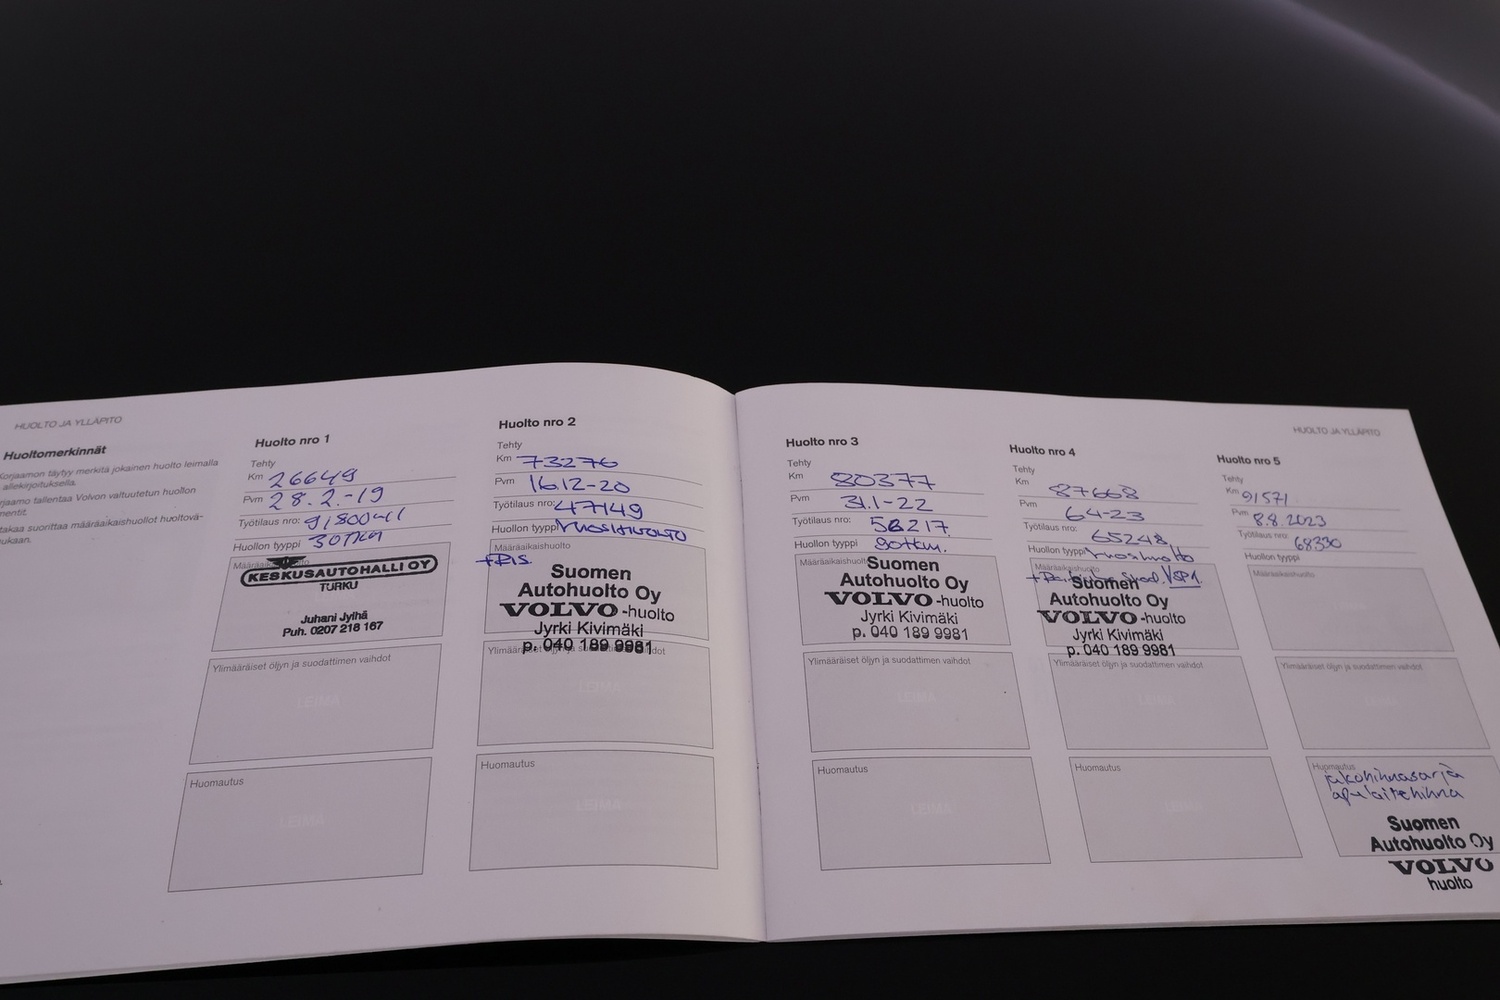 HUOLTO JA YLLÄPITO
Huoltomerkinnät
Korjaamon täytyy merkitä jokainen huolto leimalla
allekirjoituksella.
tallentaa Volvon valtuutetun huollon
takaa suorittaa määräaikaishuollot huoltovä-
mukaan.
Huolto nro 1
Tehty
Km 26649
Pvm 28.2.-19
Työtilaus nro:
Huollon tyyppi 30TKM
KESKUSAUTOHALLI OY
TURKU
Juhani Jylhä
Puh. 0207 218 167
Ylimääräiset öljyn ja suodattimen vaihdot
LEIMA
Huomautus
LEIMA
Huolto nro 2
Tehty
Km 73276
Pvm 16.12-20
Työtilaus nro: 47149
Huollon tyyppi Vuosihuolto
Määräaikaishuolto
Suomen
Autohuolto Oy
VOLVO -huolto
Jyrki Kivimäki
p. 040 189 9981
Ylimääräiset öljyn ja suodattimen vaihdot
LEIMA
Huomautus
LEIMA
HUOLTO JA YLLÄPITO
Huolto nro 3
Tehty
Km 80377
Pvm 31.1-22
Työtilaus nro: 56217
Huollon tyyppi 90tkm.
Määräaikaishuolto
Suomen
Autohuolto Oy
VOLVO -huolto
Jyrki Kivimäki
p. 040 189 9981
Ylimääräiset öljyn ja suodattimen vaihdot
LEIMA
Huomautus
LEIMA
Huolto nro 4
Tehty
Km 87668
Pvm 6.4-23
Työtilaus nro: 65248
Huollon tyyppi Vuosihuolto
Määräaikaishuolto
Suomen
Autohuolto Oy
VOLVO -huolto
Jyrki Kivimäki
p. 040 189 9981
Ylimääräiset öljyn ja suodattimen vaihdot
Huomautus
Huolto nro 5
Tehty
Km 91571
Pvm 8.8.2023
Työtilaus nro: 68330
Huollon tyyppi
Määräaikaishuolto
Ylimääräiset öljyn ja suodattimen vaihdot
Huomautus
jakohihnasarja
apulaitehihna
Suomen
Autohuolto Oy
VOLVO
huolto